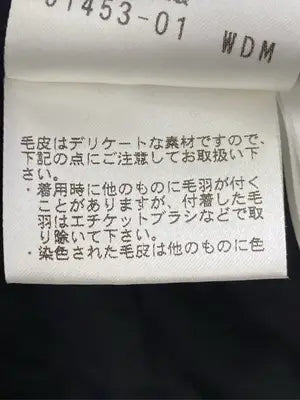 01453-01
WDM
毛皮はデリケートな素材ですので、
下記の点にご注意してお取扱い下
さい。
・着用時に他のものに毛羽が付く
ことがありますが、付着した毛
羽はエチケットブラシなどで取
り除いて下さい。
・染色された毛皮は他のものに色